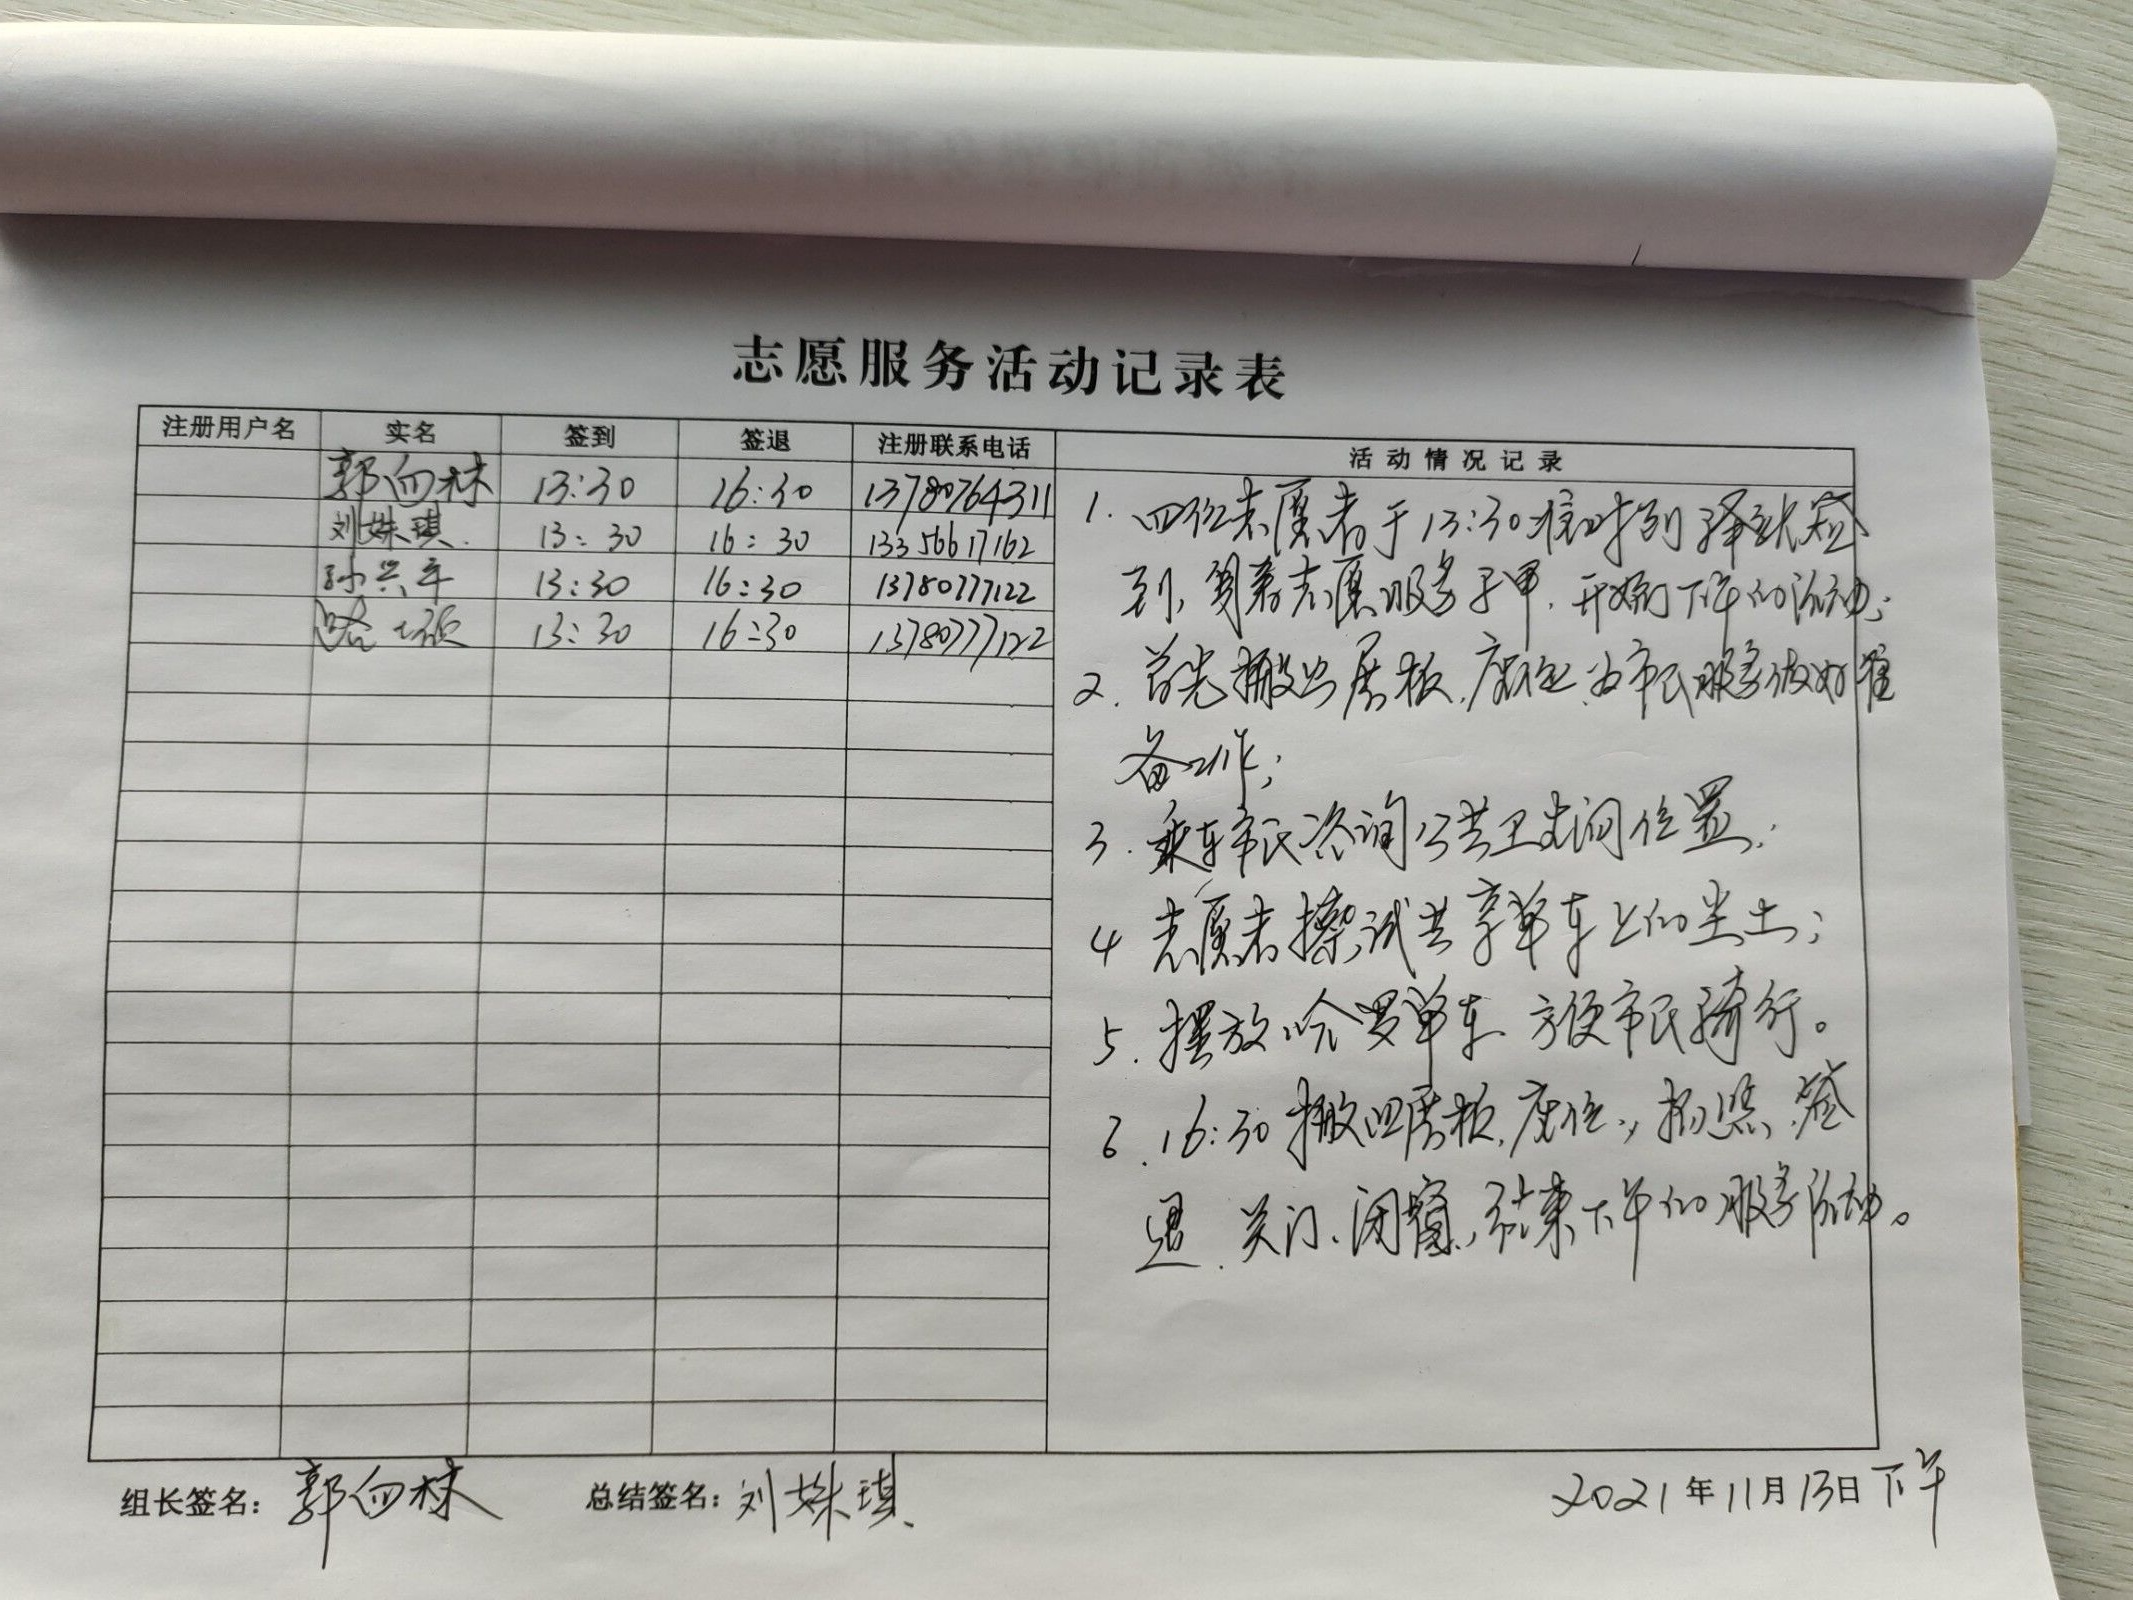 志愿服务活动记录表
注册用户名 实名 签到 签退 注册联系电话 活动情况记录
郭向林 13:30 16:30 13780764311
刘姝琪. 13:30 16:30 13356617162
孙兴平 13:30 16:30 13780777122
13:30 16:30 13780777122
1. 四位志愿者于13:30准时到 签
到, 穿着志愿服务马甲. 开始下午的活动;
2. 首先搬出展板, 座位, 为市民服务做好准
备工作;
3. 乘车市民咨询公共卫生间位置;
4 志愿者擦试共享单车上的尘土;
5. 摆放哈罗单车. 方便市民骑行。
6. 16:30搬回展板, 座位, 拍照, 签
退. 关门、闭窗, 结束下午的服务活动。
组长签名: 郭向林 总结签名: 刘姝琪. 2021年11月13日下午